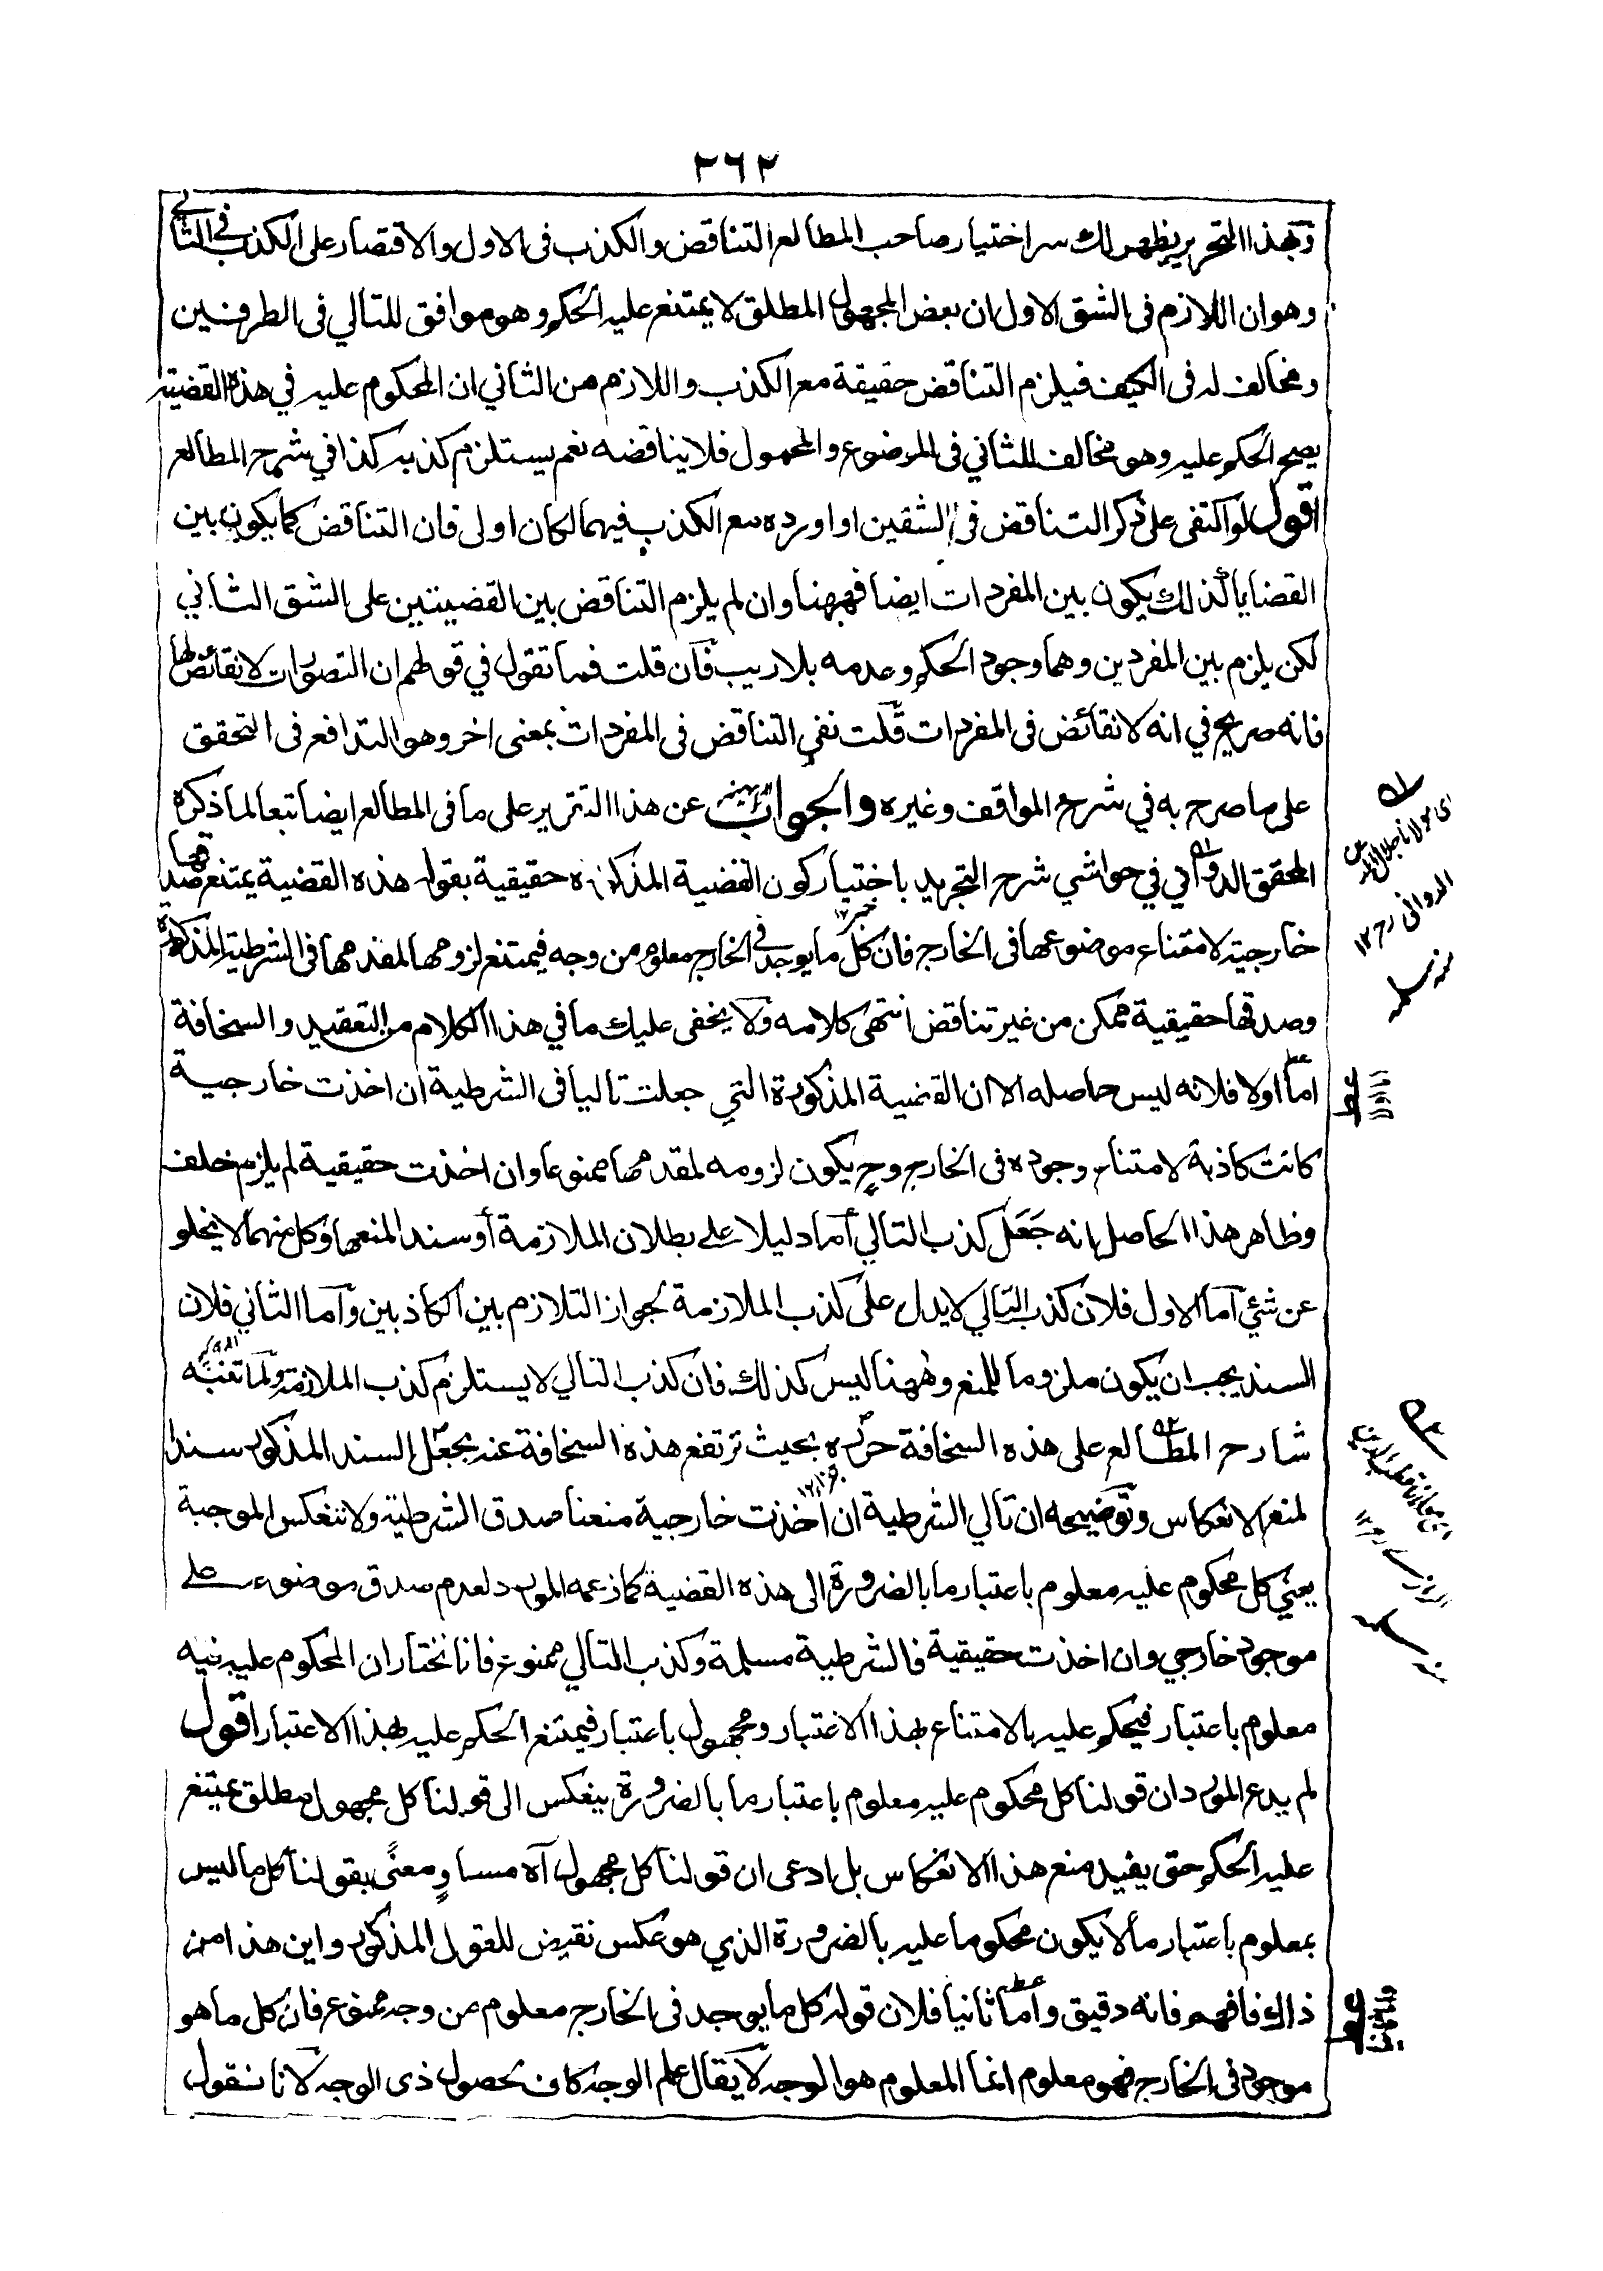 ٢٦٢
وبهذا التحرير يظهر لك سر اختيار صاحب المطالع التناقض والكذب فى الاول والاقتصار على الكذب فى الثاني
وهو ان اللازم فى الشق الاول ان بعض المجهول المطلق لا يمتنع عليه الحكم وهو موافق للتالي فى الطرفين
ومخالف له فى الكيف فيلزم التناقض حقيقة مع الكذب واللازم من الثاني ان المحكوم عليه في هذه القضية
يصح الحكم عليه وهو مخالف للثاني فى الموضوع والمحمول فلا يناقضه نعم يستلزم كذبه كذا في شرح المطالع
اقول لو اكتفى على ذكر التناقض فى الشقين او اورده مع الكذب فيهما لكان اولى فان التناقض كما يكون بين
القضايا كذلك يكون بين المفردات ايضا فههنا وان لم يلزم التناقض بين القضيتين على الشق الثاني
لكن يلزم بين المفردين وهما وجود الحكم وعدمه بلا ريب فان قلت فما تقول في قولهم ان التصورات لا نقائض لها
فانه صريح في انه لا نقائض فى المفردات قلت نفي التناقض فى المفردات بمعنى اخر وهو التدافع فى التحقق
على ما صرح به في شرح المواقف وغيره والجواب عن هذا التقرير على ما فى المطالع ايضا تبعا لما ذكره
المحقق الدواني في حواشي شرح التجريد باختيار كون القضية المذكورة حقيقية بقوله هذه القضية يمتنع صدقها
خارجية لامتناع موضوعها فى الخارج فان كل ما يوجد فى الخارج معلوم من وجه فيمتنع لزومها لمقدمها فى الشرطية المذكورة
وصدقها حقيقية ممكن من غير تناقض انتهى كلامه ولا يخفى عليك ما في هذا الكلام من التعقيد والسخافة
اما اولا فلانه ليس حاصله الا ان القضية المذكورة التي جعلت تاليا فى الشرطية ان اخذت خارجية
كانت كاذبة لامتناع وجوده فى الخارج وح يكون لزومه لمقدمها ممنوعا وان اخذت حقيقية لم يلزم خلف
وظاهر هذا الحاصل انه جَعَل كذب التالي اما دليلا على بطلان الملازمة أو سند المنعها وكل منهما لا يخلو
عن شئ اما الاول فلان كذب التالي لا يدل على كذب الملازمة لجواز التلازم بين الكاذبين واما الثاني فلان
السند يجب ان يكون ملزوما للمنع وههنا ليس كذلك فان كذب التالي لا يستلزم كذب الملازمة ولما تنبَّه
شارح المطالع على هذه السخافة حرره بحيث ترتفع هذه السخافة عنه بجعل السند المذكور سندا
لمنع الانعكاس وتوضيحه ان تالي الشرطية ان اخذت خارجية منعنا صدق الشرطية ولا تنعكس الموجبة
يعني كل محكوم عليه معلوم باعتبار ما بالضرورة الى هذه القضية كما زعمه المورد لعدم صدق موضوعه على
موجود خارجي وان اخذت حقيقية فالشرطية مسلمة وكذب التالي ممنوع فانا نختار ان المحكوم عليه فيه
معلوم باعتبار فيحكم عليه بالامتناع بهذا الاعتبار ومجهول باعتبار فيمتنع الحكم عليه بهذا الاعتبار اقول
لم يدع المورد ان قولنا كل محكوم عليه معلوم باعتبار ما بالضرورة ينعكس الى قولنا كل مجهول مطلق يمتنع
عليه الحكم حتى يفيد منع هذا الانعكاس بل ادعى ان قولنا كل مجهول آه مساوٍ معنًى بقولنا كل ما ليس
بمعلوم باعتبار ما لا يكون محكوما عليه بالضرورة الذي هو عكس نقيض للقول المذكور واين هذا من
ذاك فافهم فانه دقيق واما ثانيا فلان قوله كل ما يوجد فى الخارج معلوم من وجه ممنوع فان كل ما هو
موجود فى الخارج فهو معلوم انما المعلوم هو الوجه لا يقال علم الوجه كاف لحصول ذى الوجه لانا نقول
اى مولانا جلال الدين
الدواني